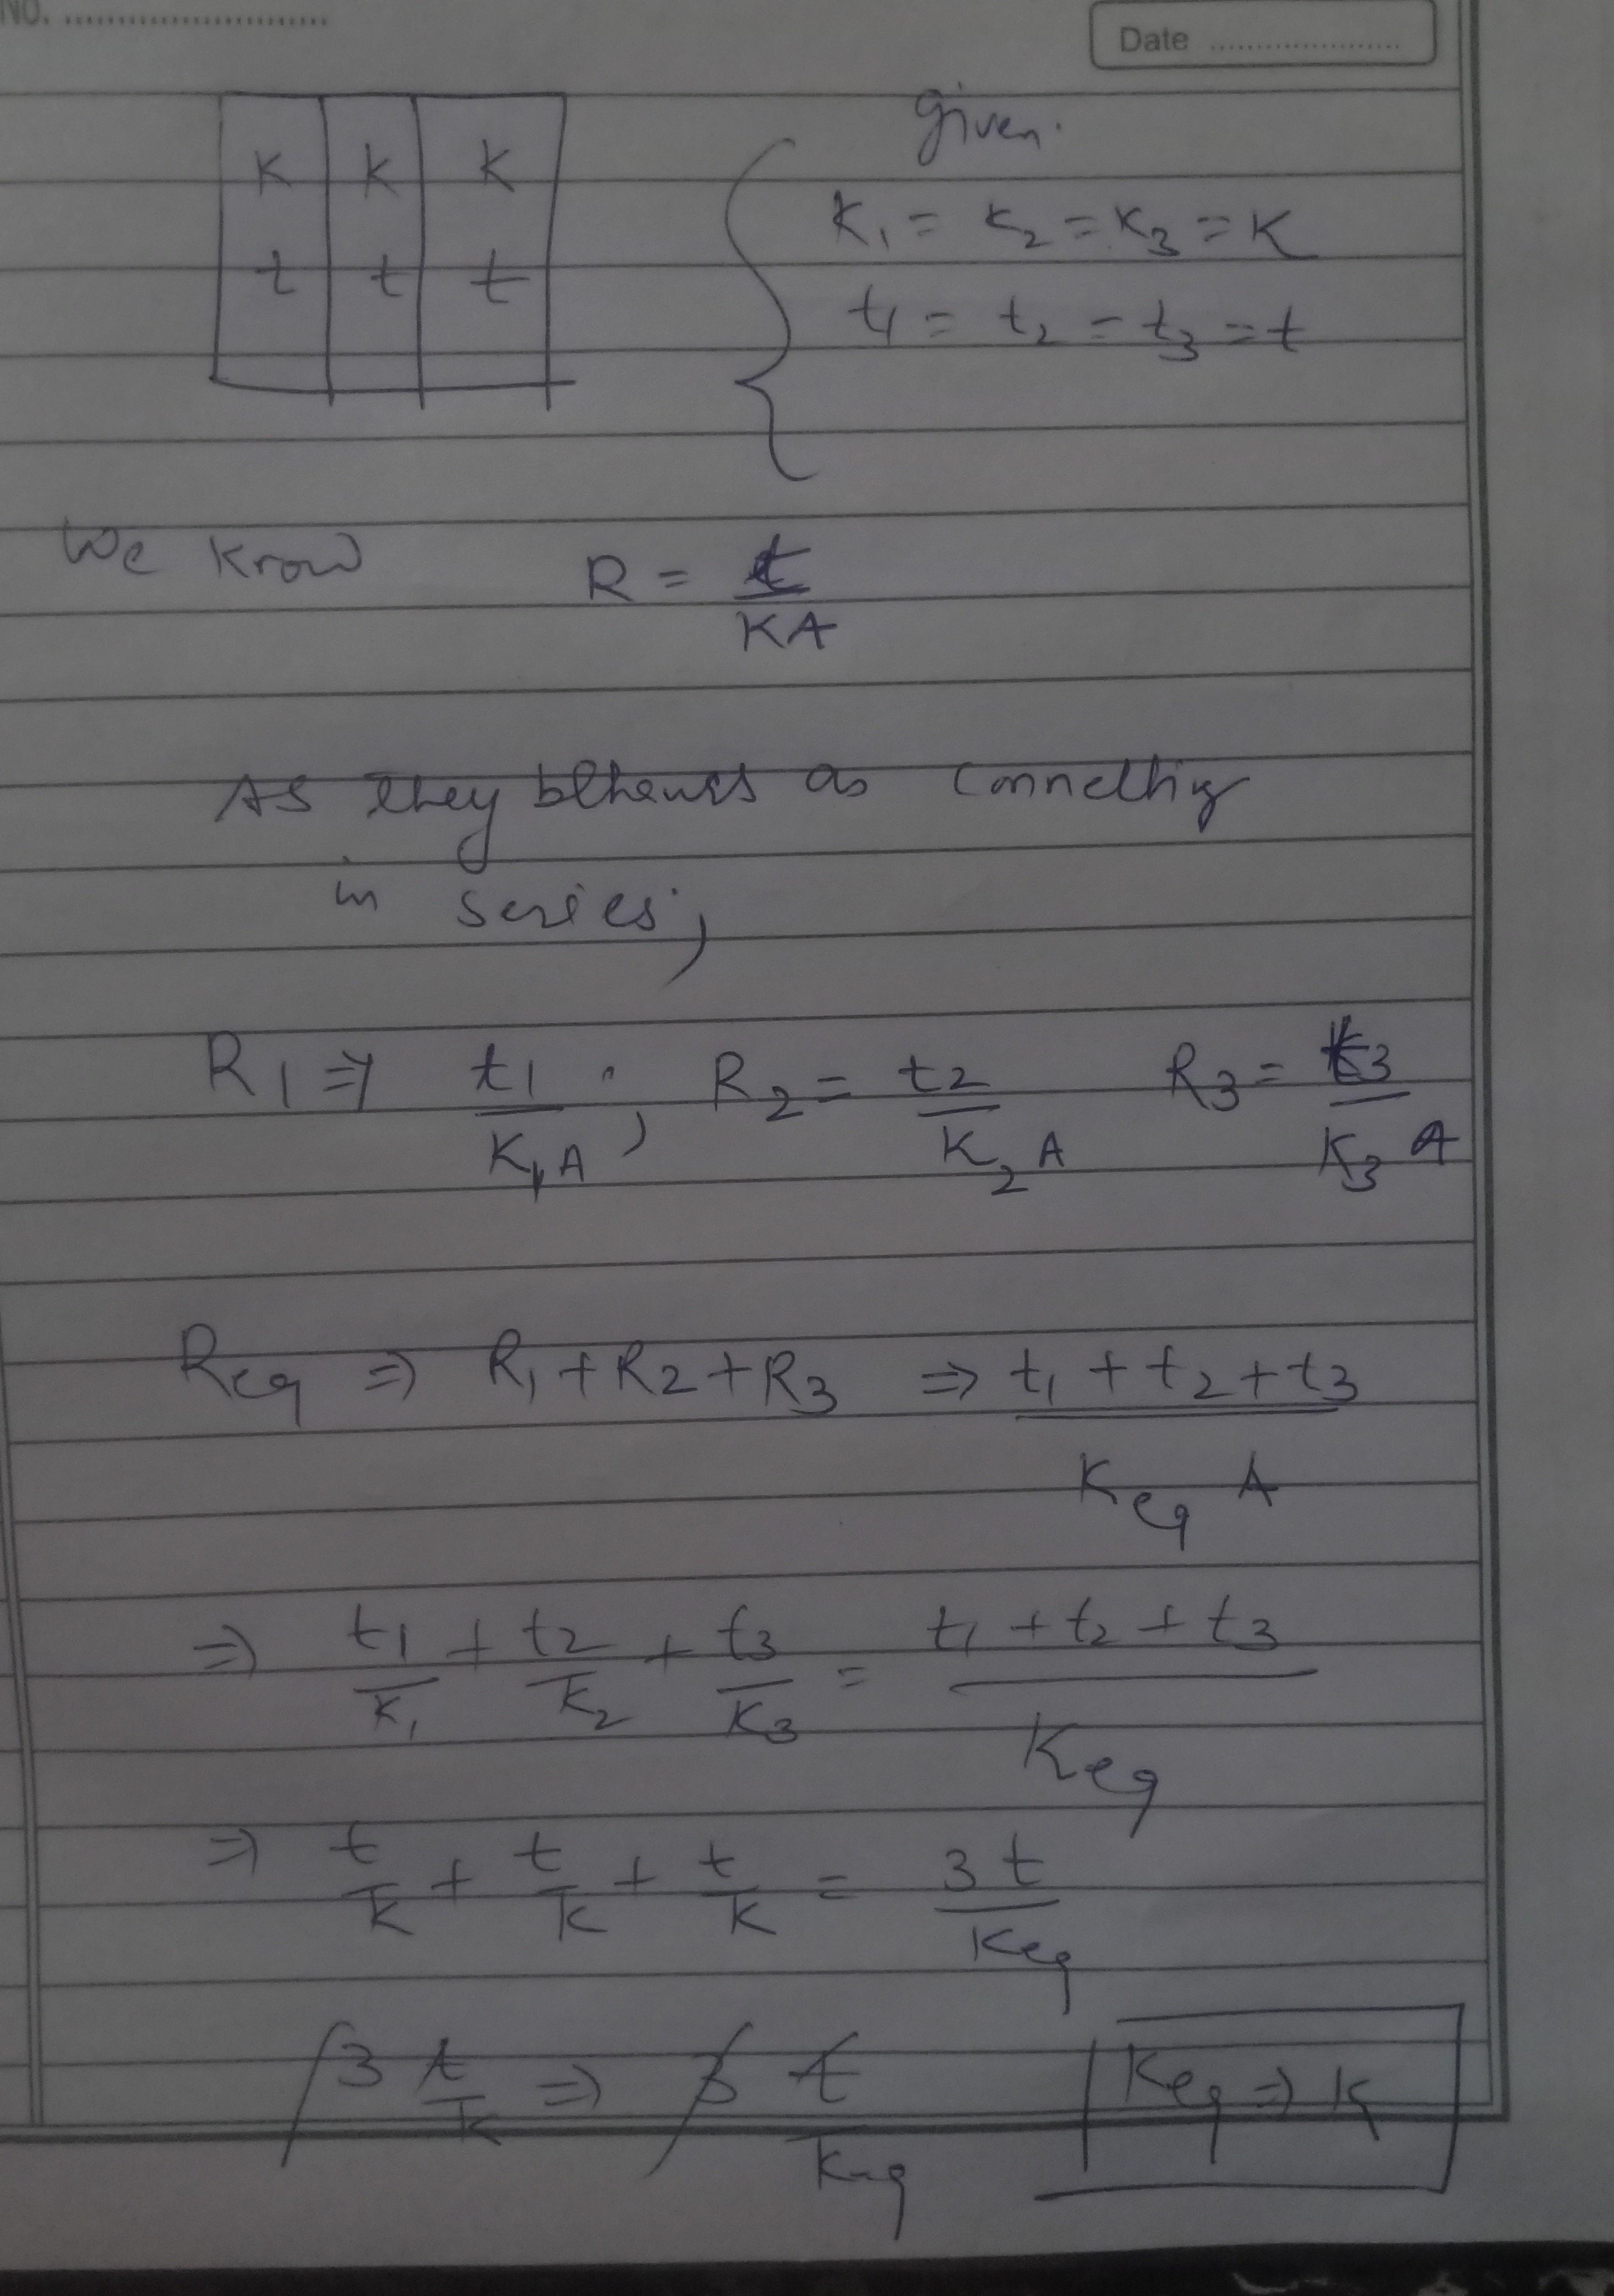 NO. ........................
Date ........................
K K K
t t t
given.
K₁ = K₂ = K₃ = K
t₁ = t₂ = t₃ = t
We know R = t/KA
As they as
in series,
R₁ ⇒ t₁/K₁A ; R₂ = t₂/K₂A R₃ = t₃/K₃A
Req ⇒ R₁ + R₂ + R₃ ⇒ t₁ + t₂ + t₃/Keq A
⇒ t₁/K₁ + t₂/K₂ + t₃/K₃ = t₁ + t₂ + t₃/Keq
⇒ t/K + t/K + t/K = 3t/Keq
3 t/K ⇒ 3 t/Keq Keq ⇒ K